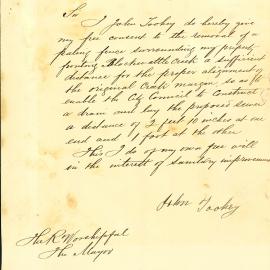 Sir
I John Tookey do hereby give
my free consent to the removal of a
paling fence surrounding my property
fronting Blackwattle Creek a sufficient
distance for the proper alignment of
the original Creek margin so as to
enable the City Council to Construct
a drain and lay the proposed sewer
a distance of 2 feet 10 inches at one
end and 1 foot at the other
This I do of my own free will
in the interests of sanitary improvement
John Tookey
The Rt Worshipful
The Mayor